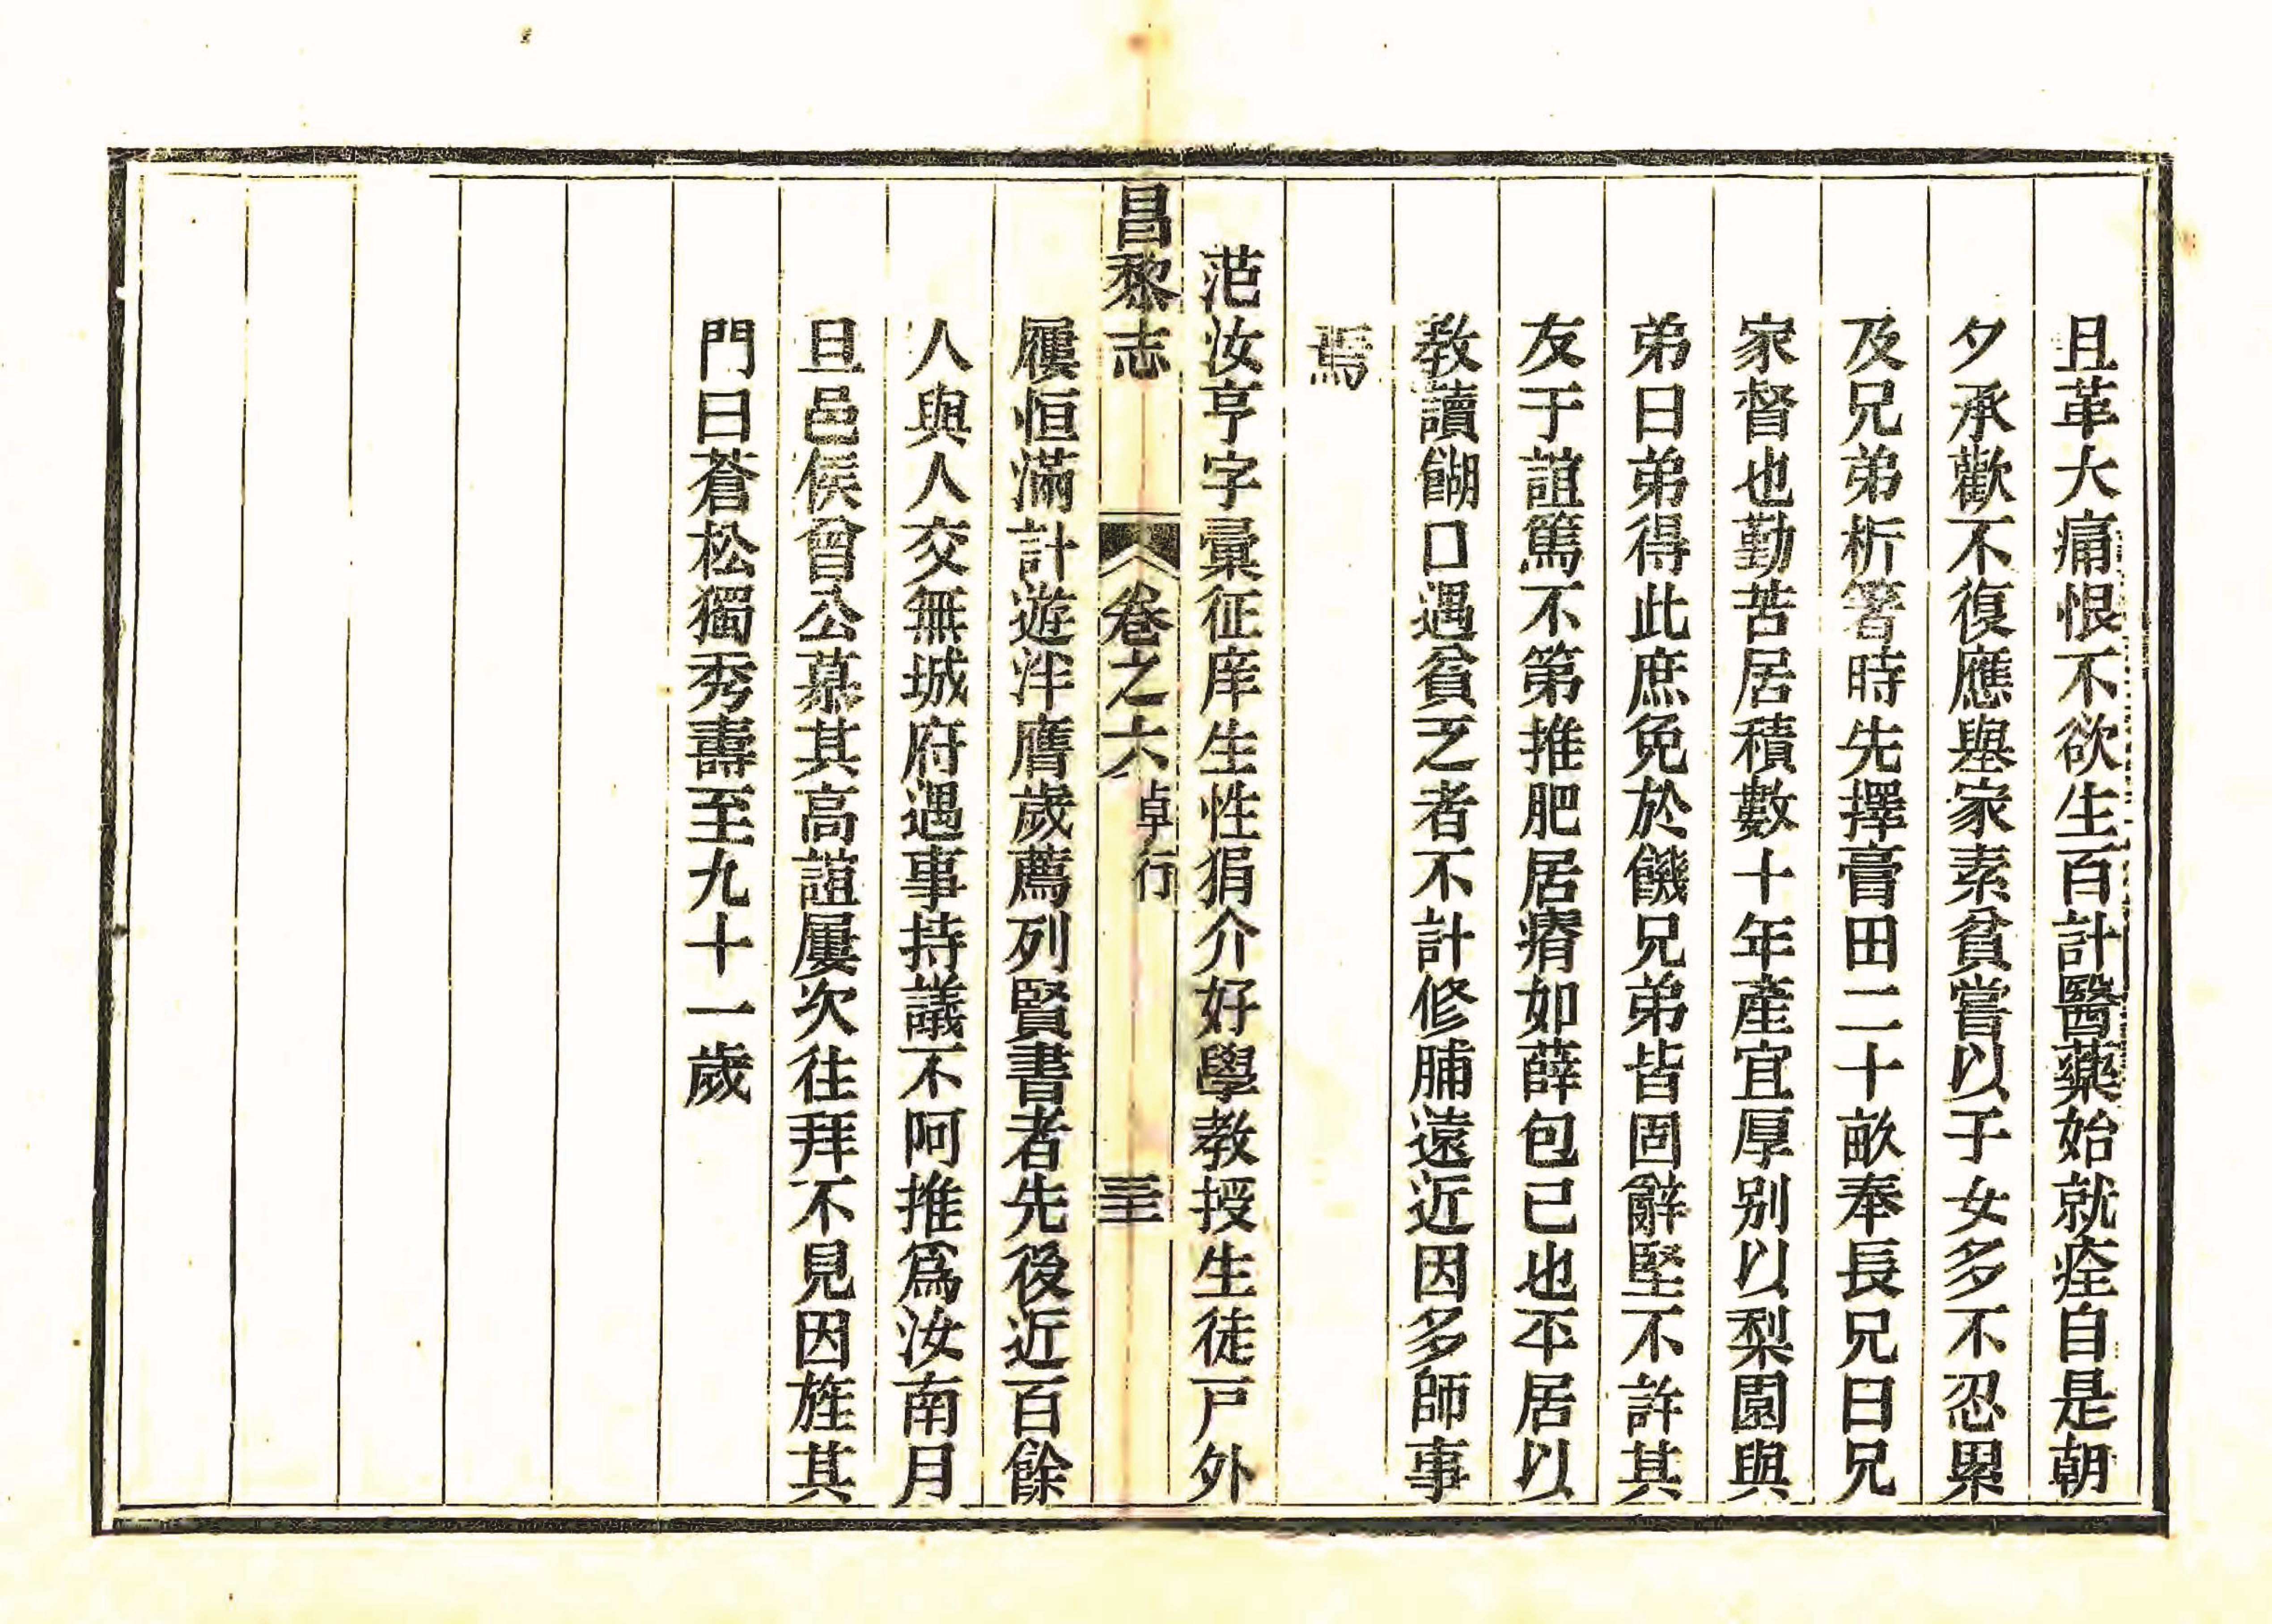 且革大痛恨不欲生百計醫藥始就痊自是朝
夕承歡不復應舉家素貧嘗以子女多不忍累
及兄弟析箸時先擇膏田二十畝奉長兄曰兄
家督也勤苦居積數十年產宜厚别以梨園與
弟曰弟得此庶免於饑兄弟皆固辭堅不許其
友于誼篤不第推肥居瘠如薛包已也平居以
教讀餬口遇貧乏者不計修脯遠近因多師事
焉
范汝亨字彚征庠生性狷介好學教授生徒戸外
昌黎志 卷之六 卓行 三十
屨恒滿計遊泮膺歲薦列賢書者先後近百餘
人與人交無城府遇事持議不阿推爲汝南月
旦邑侯曾公慕其高誼屢次往拜不見因旌其
門曰蒼松獨秀壽至九十一歲